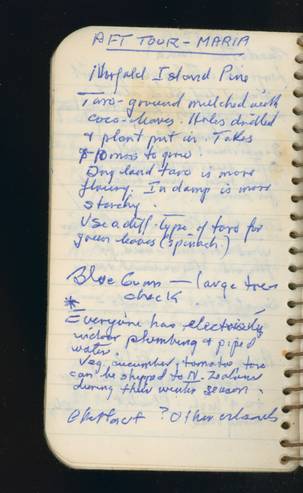 AFT TOUR - MARIA
Norfald Island Pine
Taro - ground mulched with
coco-leaves. Holes drilled
& plant put in. Takes
8-10 mos to grow.
Dry land taro is more
floury. In damp is more
starchy.
Use a diff. type of taro for
green leaves (spinach.)
Blue Gum - large trees
check
*
Everyone has electricity
indoor plumbing & piped
water.
Veg. cucumber, tomato, taro
can be shipped to N. Zealand
during their winter season.
? Other islands